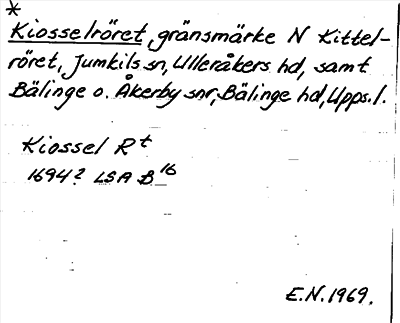 *
Kiosselröret, gränsmärke N Kittel-
röret, Jumkils sn, Ulleråkers hd, samt
Bälinge o. Åkerby snr, Bälinge hd, Upps. l.
Kiossel Rt
1694? LSA B 16
E.N. 1969.